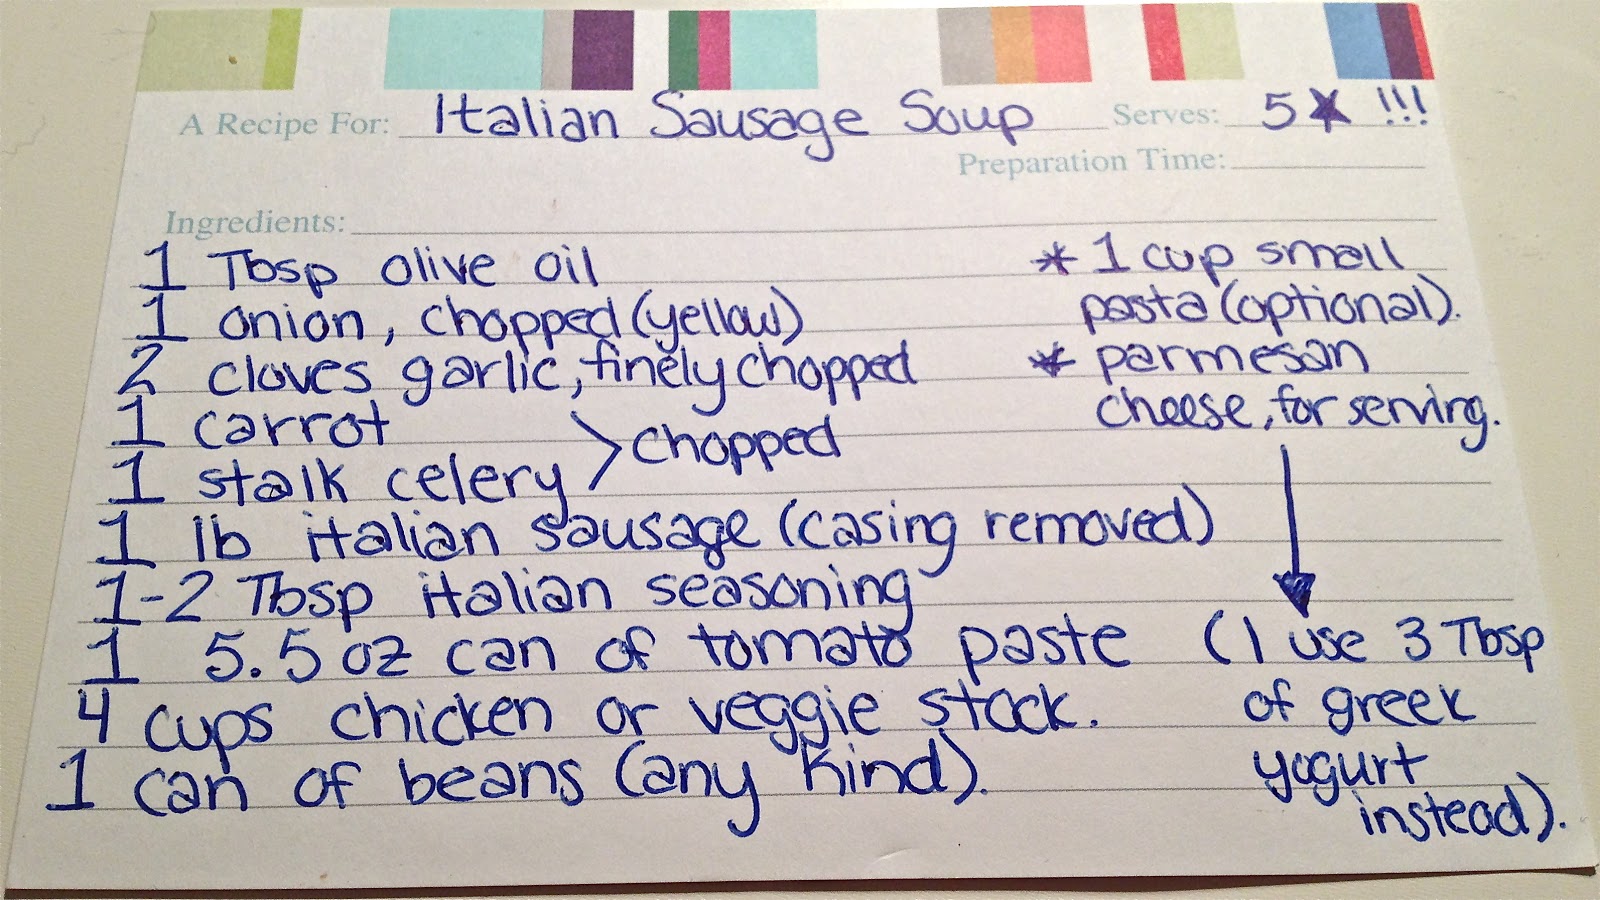 A Recipe For: Italian Sausage Soup Serves: 5★ !!!
Preparation Time:
Ingredients:
1 Tbsp olive oil
1 onion, chopped (yellow)
2 cloves garlic, finely chopped
1 carrot
1 stalk celery > chopped
1 lb italian sausage (casing removed)
1-2 Tbsp italian seasoning
1 5.5 oz can of tomato paste
4 cups chicken or veggie stock.
1 can of beans (any kind).
* 1 cup small
pasta (optional).
* parmesan
cheese, for serving.
(I use 3 Tbsp
of greek
yogurt
instead).